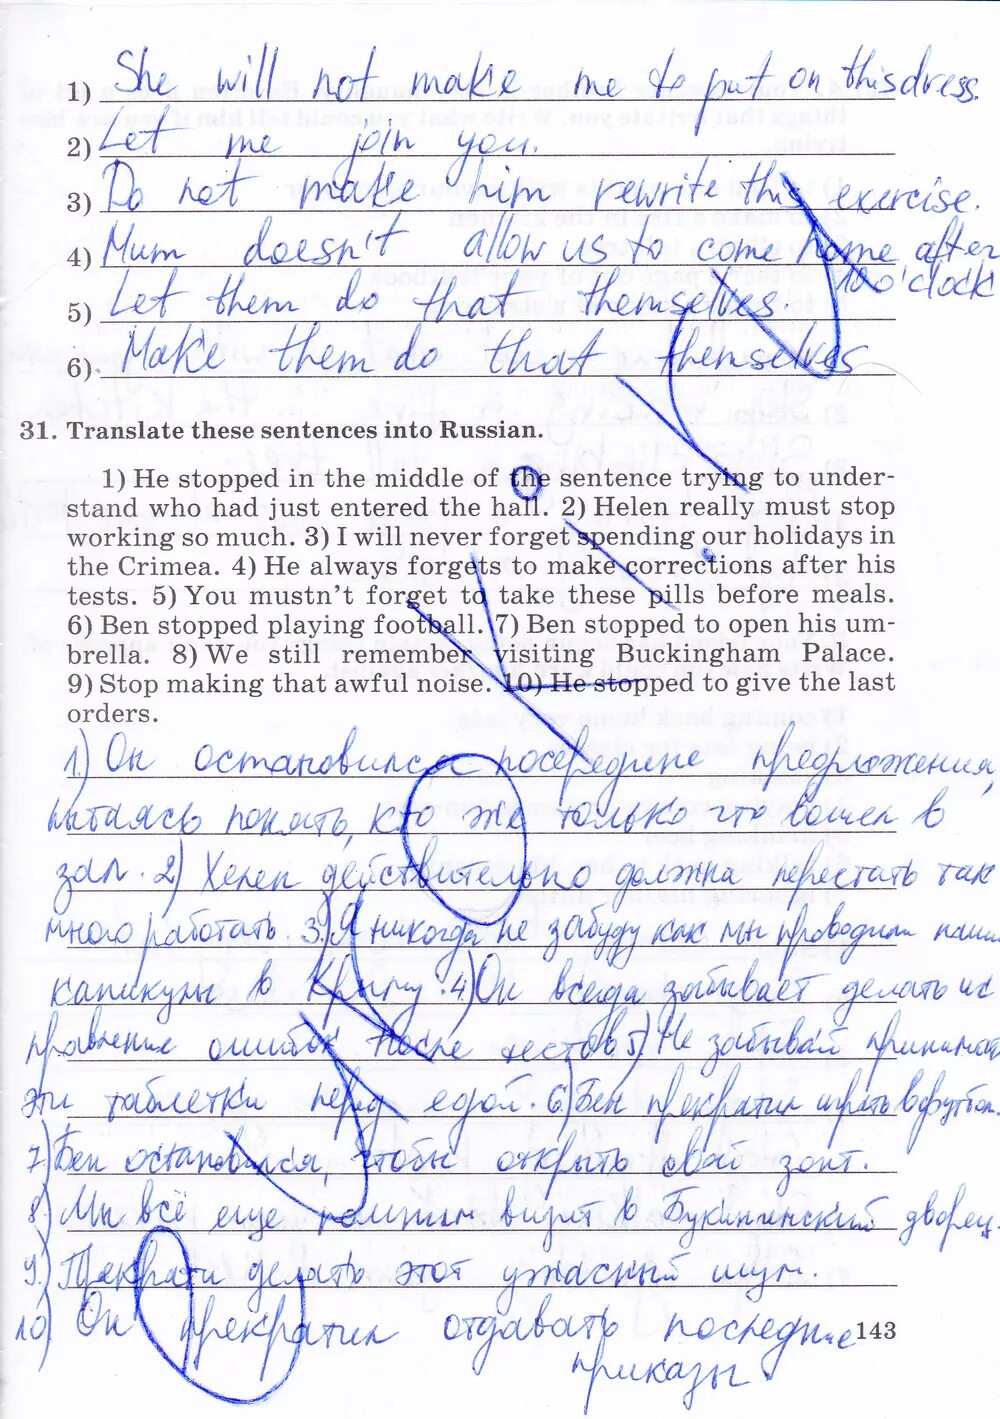 1) She will not make me to put on this dress.
2) Let me join you.
3) Do not make him rewrite this exercise.
4) Mum doesn't allow us to come home after
10 o'clock
5) Let them do that themselves.
6) Make them do that themselves
31. Translate these sentences into Russian.
1) He stopped in the middle of the sentence trying to under-
stand who had just entered the hall. 2) Helen really must stop
working so much. 3) I will never forget spending our holidays in
the Crimea. 4) He always forgets to make corrections after his
tests. 5) You mustn't forget to take these pills before meals.
6) Ben stopped playing football. 7) Ben stopped to open his um-
brella. 8) We still remember visiting Buckingham Palace.
9) Stop making that awful noise. 10) He stopped to give the last
orders.
1.) Он остановился посередине предложения,
пытаясь понять, кто же только что вошел в
зал. 2) Хелен действительно должна перестать так
много работать. 3.) Я никогда не забуду как мы проводили наши
каникулы в Крыму. 4) Он всегда забывает делать ис
правление ошибок после тестов 5) Не забывай принимать
эти таблетки перед едой. 6) Бен прекратил играть в футбол.
7) Бен остановился, чтобы открыть свой зонт.
8) Мы всё еще помним визит в Букингемский дворец.
9) Прекрати делать этот ужасный шум.
10) Он прекратил отдавать последние
приказы.
143